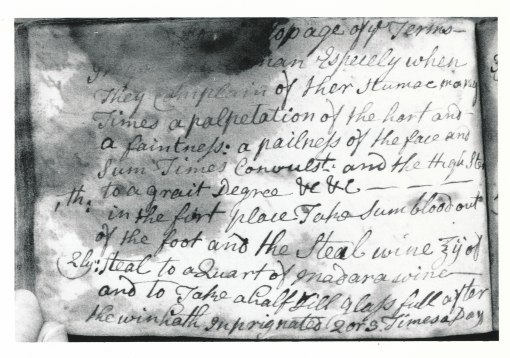 opage of ye Terms
man Especely when
They Complain of ther Stumac many
Times a palpetation of the hart and
a faintness: a pailness of the face and
Sum Times Convulst. and the
to a grait Degree &c &c
1th: in the first place Take Sum blood out
of the foot and the Steal wine ʒij of
2ly: Steal to a Quart of madara wine
and to Take a half Gill glass full after
the win hath Inprignated 2 or 3 Times a Day